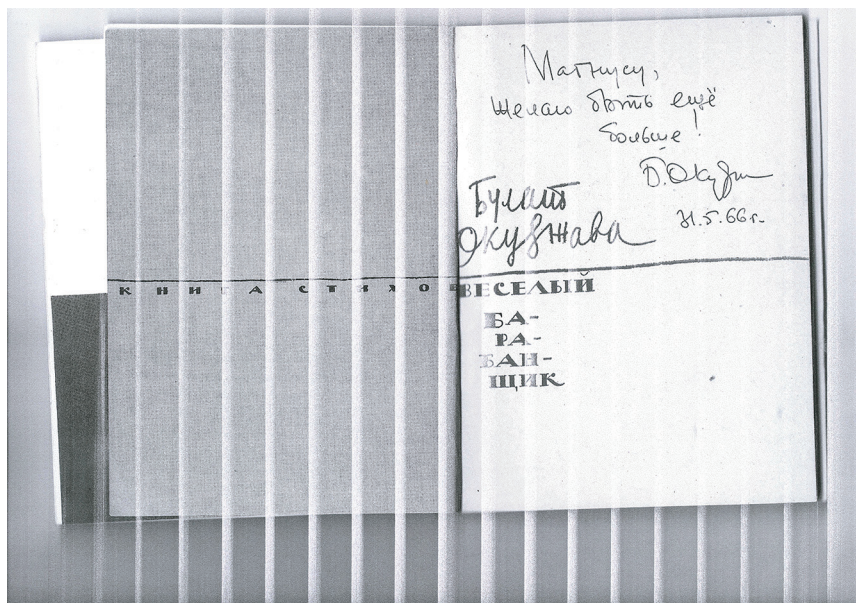 Магнусу,
желаю быть ещё
больше!
Б. Окуджа
31.5.66 г.
Булат
Окуджава
КНИГА СТИХОВ
ВЕСЕЛЫЙ
БА-
РА-
БАН-
ЩИК